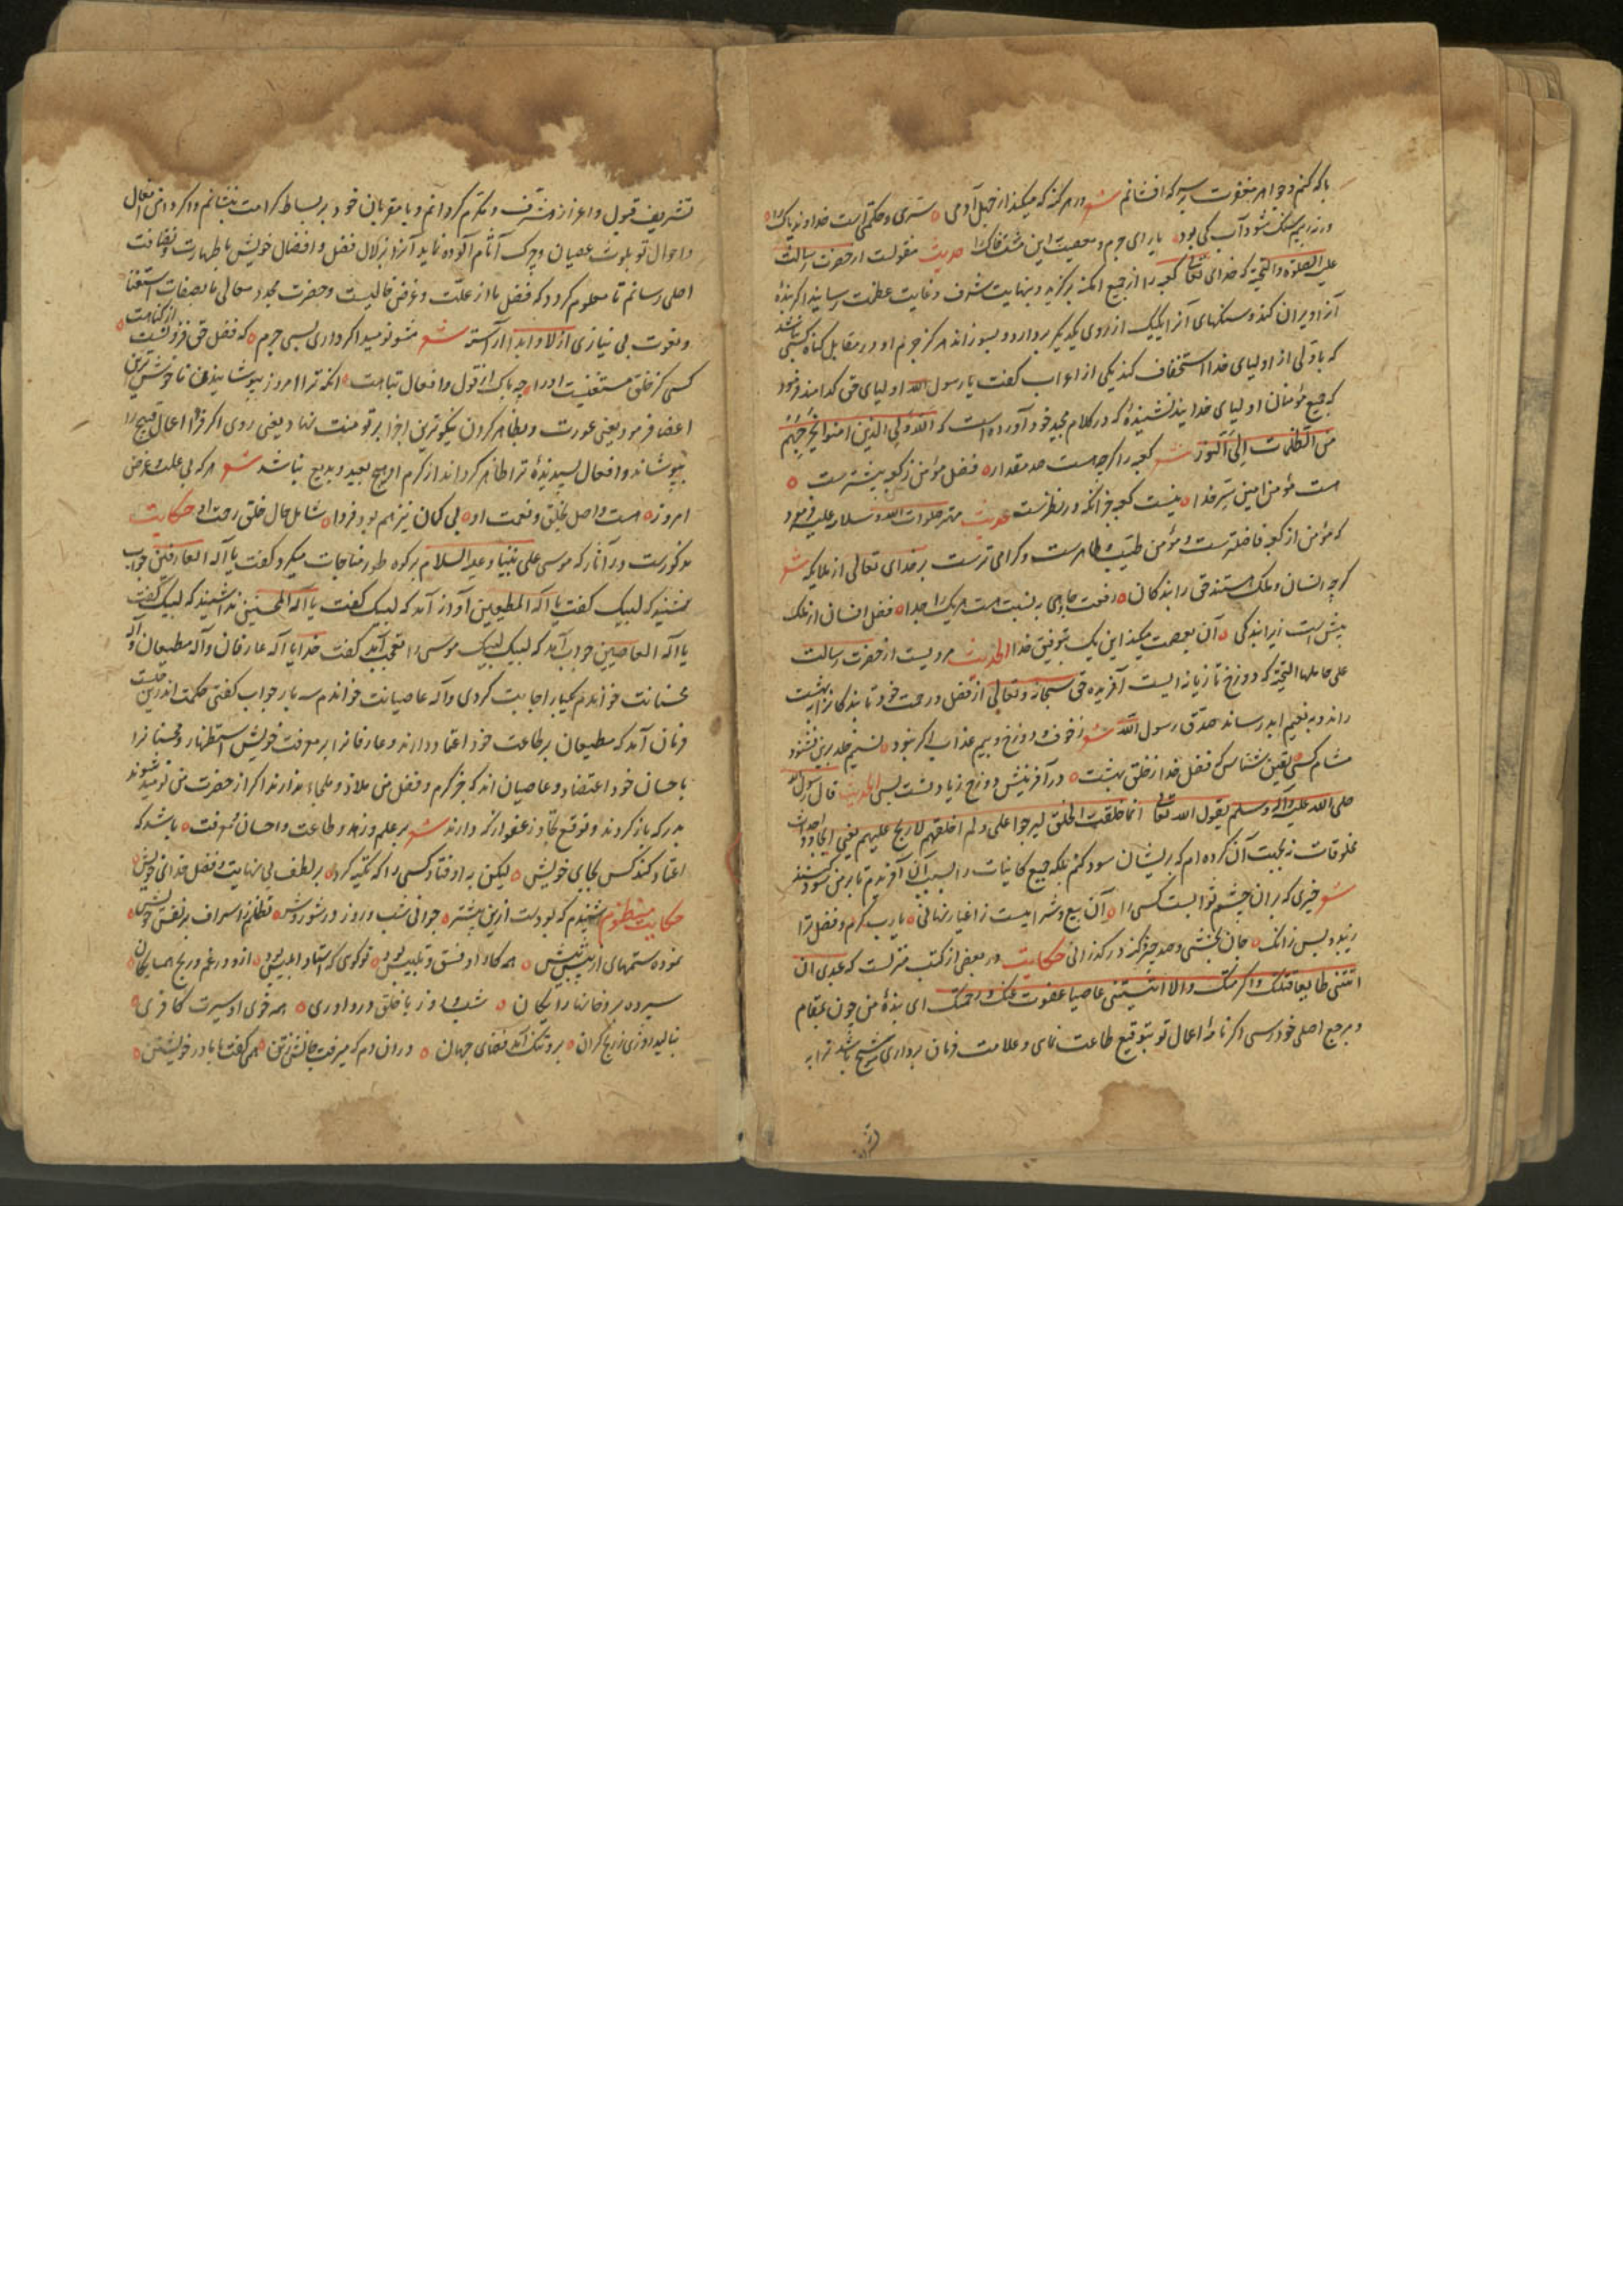 با که کنم و جواهر مغفرت بر سر که افشانم شعر در هر گنه که میکند از خیل آدمی ٥ سری و حکمتی است خداوند پاک را ٥
ورنه بر سنک شود آب کی بود ٥ یارای جرم و معصیت این مشت خاک را حدیث منقولست از حضرت رسالت
علیه الصلوة والتحیة که خدای تعالی کعبه را از جمیع امکنه برگزید و بنهایت شرف و غایت عظمت رسانید اگر بندۀ
آنرا ویران کند و سنکهای آنرا یکیک از روی یکدیکر بردارد و بسوزاند هرگز جرم او در مقابل کناه کسی نباشد
که با ولی از اولیای خدا استخفاف کند یکی از اعراب کفت یا رسول الله اولیای حق کدامند فرمود
که جمیع مؤمنان اولیای خدایند نشنیدۀ که در کلام مجید خود آورده است که الله ولی الذین امنوا یخرجهم
من الظلمات الی النور شعر کعبه را کرچه هست صد مقدار ٥ فضل مؤمن ز کعبه بیشترست ٥
هست مؤمن امین سر خدا ٥ نیست کعبه جز انکه در نظرست حدیث مهتر صلوات الله و سلامه علیه فرمود
که مؤمن از کعبه فاضلترست و مؤمن طیب و طاهرست و کرامی ترست بر خدای تعالی از ملایکه شعر
کرچه انسان و ملک هستند حق را بندکان ٥ رفعت و جاهی بنسبت هست هر یک را جدا ٥ فضل انسان از ملک
بیش است زیرا بندکی ٥ آن بعصمت میکند این یک بتوفیق خدا الحدیث مرویست از حضرت رسالت
علی حاملها التحیة که دوزخ تازیانه ایست آفریده حق سبحانه و تعالی از فضل و رحمت خود تا بندکانرا ببهشت
راند و به نعیم ابد رساند صدق رسول الله شعر ز خوف دوزخ و بیم عذاب اکر نبود ٥ نسیم خلد برین نشنود
مشام کسی ٥ یقین شناس که فضل خدا ز خلق بهشت ٥ در آفرینش دوزخ زیادتست بسی الحدیث قال رسول الله
صلی الله علیه وآله وسلم یقول الله تعالی انما خلقت الخلق لیربحوا علی ولم اخلقهم لاربح علیهم یعنی ایجاد و احداث
مخلوقات نه بجهت آن کرده ام که بر یشان سود کنم بلکه جمیع کاینات را بسبب آن آفریدم تا بر من سود کنند
شعر خیری که بران چشم ثوابست کسی را ٥ آن بیع و شرا نیست ز اغیار نهانی ٥ یا رب کرم و فضل ترا
ریبود بس زانک ٥ جان بخشی و صد چیز کنه درکذرانی حکایت در بعضی از کتب منزلست که عبدی ان
اتیتنی طایعا قبلتک واکرمتک والا اتیتنی عاصیا عفوت عنک و رحمتک ای بندۀ من چون بمقام
و مرجع اصلی خود رسی اکر نامۀ اعمال تو بتوقیع طاعت نمای و علامت فرمان برداری موشح باشد ترا به
تشریف قبول و اعزاز مشرف و مکرم کردانم و با مقربان خود بر بساط کرامت بنشانم و اکر دامن افعال
و احوال تو بلوث عصیان و چرک آثام آلوده نماید آنرا بزلال فضل و افضال خویش با طهارت و نظافت
اصلی رسانم تا معلوم کردد که فضل ما از علت و غرض خالیست و حضرت مجد و معالی ما بصفات استغنا
و نعوت بی نیازی ازلا و ابدا آراسته شعر مشو نومید اکر داری بسی جرم ٥ که فضل حق فزونست از کناهت ٥
کسی کز خلق مستغنیست او را ٥ چه باک از قول و افعال تباهت ٥ انکه ترا امروز بپوشانیدن ناخوش ترین
اعضا فرمود یعنی عورت و بظاهر کردن نیکوترین اجزا بر تو منت نهاد یعنی روی اکر فردا اعمال قبیح را
بپوشاند و افعال پسندیدۀ ترا ظاهر کرداند از کرم او هیچ بعید و بدیع نباشد شعر هر که بی علت و غرض
امروز ٥ هست واصل بخلق و نعمت او ٥ بی کمان نیز هم بود فردا ٥ شامل حال خلق رحمت او حکایت
مذکورست در آثار که موسی علی نبینا و علیه السلام بر کوه طور مناجات میکرد و کفت یا اله العارفین جواب
شنید که لبیک کفت یا اله المطیعین آواز آمد که لبیک کفت یا اله المحسنین ندا شنید که لبیک کفت
یا اله العاصین جواب آمد که لبیک لبیک لبیک موسی را تعجب آمد کفت خدایا اله عارفان و اله مطیعان و اله
محسنانت خواندم یکبار اجابت کردی و اله عاصیانت خواندم سه بار جواب کفتی حکمت اندرین چیست
فرمان آمد که مطیعان بر طاعت خود اعتماد دارند و عارفانرا بر معرفت خویش استظهار و محسنانرا
باحسان خود اعتضاد و عاصیان اند که جز کرم و فضل من ملاذ و ملجاء ندارند اکر از حضرت من نومید شوند
بدر که باز کردند و توقع تجاوز و عفو از که دارند شعر بر علم و زهد و طاعت و احسان و معرفت ٥ باشد که
اعتماد کند کس بجای خویش ٥ لیکن نه اوفتاد کسی را که تکیه کرد ٥ بر لطف بی نهایت و فضل خدای خویش ٥
حکایت منظوم شنیدم که بودست ازین پیشتر ٥ جوانی شب و روز در شور و شر ٥ تظلم ز اسراف بر نفس خویش ٥
نموده ستمهای از پیش پیش ٥ همه کار او فسق و تلبیس بود ٥ تو کوی که استاد ابلیس بود ٥ ازو در غم و رنج همسایکان ٥
سپرده بدو خانها رایکان ٥ شب و روز با خلق در داوری ٥ همه خوی او سیرت کافری ٥
بنالید روزی ز رنج کران ٥ برو تنک آمد فضای جهان ٥ در ان دم که میرفت جانش ز تن ٥ همی کفت با مادر خویشتن ٥